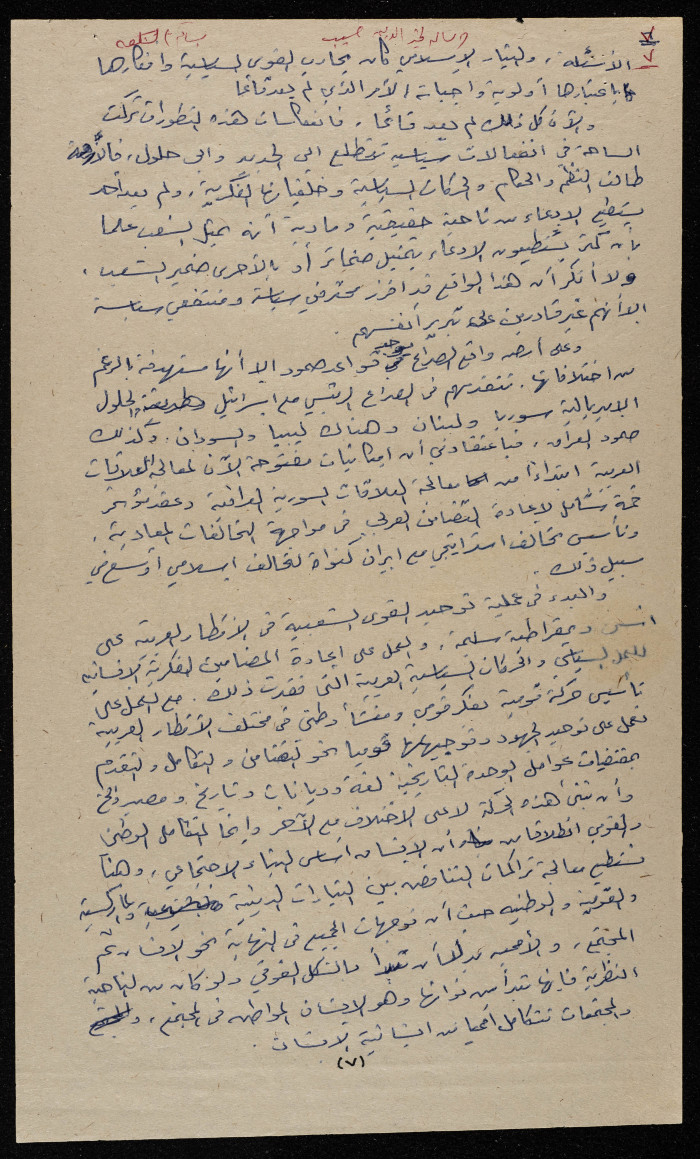 ٧
٧
رسالة خير الدين حسيب
الأسئلة، والتيار الإسلامي كان يحارب القوى السياسية وأفكارها
باعتبارها أولوية واجبات الأمر الذي لم يعد قائما
والآن كل ذلك لم يعد قائما، فانعكاسات هذه التطورات تركت
الساحة في انفعالات سياسية تتطلع الى الجديد والى حلول، فالأزمة
طالت النظم والحكام والحركات السياسية وخلفياتها الفكرية، ولم يعد أحد
يستطيع الادعاء من ناحية حقيقية ومادية أنه يمثل الشعب علما
بأن كثر يستطيعون الادعاء بتمثيل ضمائر أو بالأحرى ضمير الشعب،
ولا أنكر أن هذا الواقع قد أفرز محترفي سياسة ومنتفعي سياسة
الا أنهم غير قادرين على تبرير أنفسهم.
وعلى أرض واقع الصراع توجد قواعد صمود الا أنها مستهدفة بالرغم
من اختلافاتها. تتقدمهم في الصراع الرئيسي مع اسرائيل والحلول
الامبريالية سوريا ولبنان وهناك ليبيا والسودان. وكذلك
صمود العراق، فباعتقادي أن امكانيات مفتوحة الآن لمعالجة العلاقات
العربية ابتداءا من معالجة العلاقات السورية العراقية وعقد مؤتمر
قمة شامل لاعادة التضامن العربي في مواجهة التحالفات المعادية،
وتأسيس تحالف استراتيجي مع ايران كنواة لتحالف اسلامي أوسع في
سبيل ذلك.
والبدء في عملية توحيد القوى الشعبية في الأقطار العربية على
أسس ديمقراطية سليمة، والعمل على اعادة المضامين الفكرية الانسانية
للعمل السياسي والحركات السياسية العربية التي فقدت ذلك. مع العمل على
تأسيس حركة قومية بفكر قومي ومنشأ وطني في مختلف الأقطار العربية
تعمل على توحيد الجهود وتوجيهها قوميا نحو التضامن والتكامل والتقدم
بمقتضيات عوامل الوحدة التاريخية لغة وديانات وتاريخ ومصير الخ
وأن تبنى هذه الحركة لا على الاختلاف مع الآخر وإنما للتكامل الوطني
والقومي انطلاقا من أن الانسان أساس البناء الاجتماعي، وهنا
نستطيع معالجة تراكمات التناقض بين التيارات الدينية والماركسية
والقومية والوطنية حيث أن توجهات الجميع في النهاية نحو الانسان ثم
المجتمع، والأصعب بدلا أن تبدأ بالشكل الفوقي ولو كان من الناحية
النظرية فإنها تبدأ من نواتها وهو الانسان المواطن في المجتمع،
والمجتمعات تتكامل انسانية الانسان.
(٧)